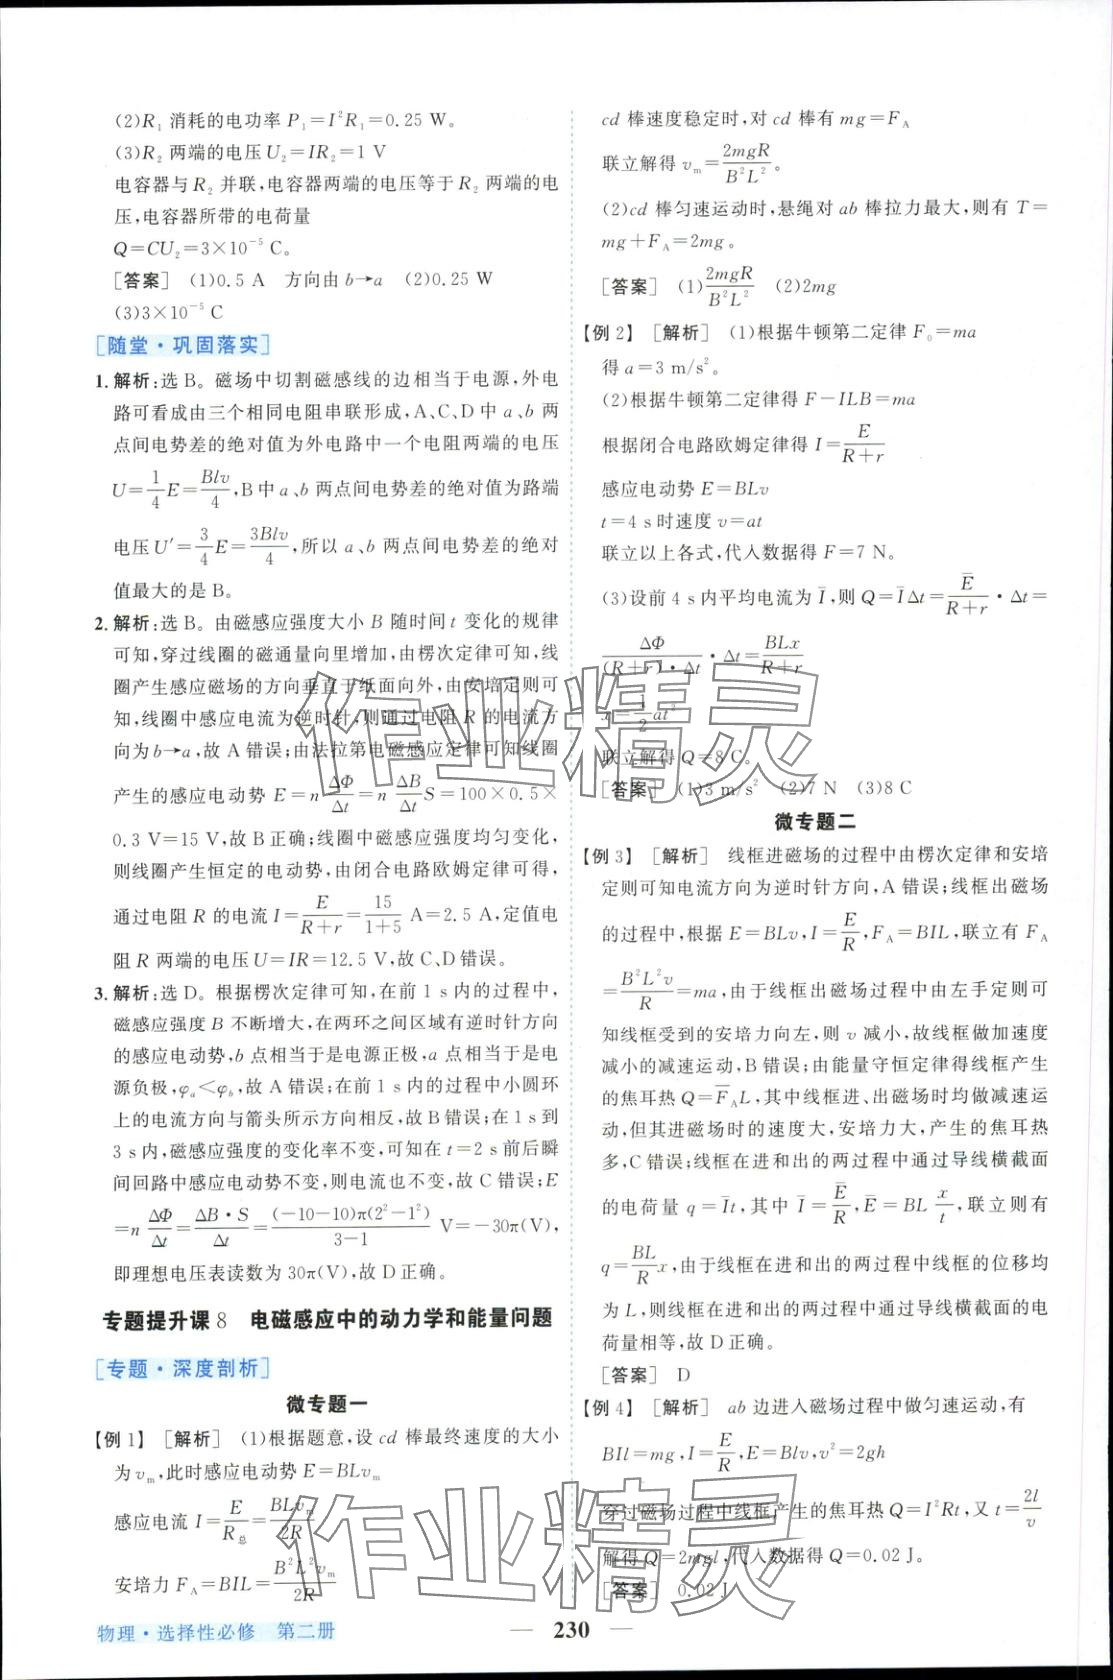 (2)R₁ 消耗的电功率 P₁=I²R₁=0.25 W。
(3)R₂ 两端的电压 U₂=IR₂=1 V
电容器与 R₂ 并联,电容器两端的电压等于 R₂ 两端的电
压,电容器所带的电荷量
Q=CU₂=3×10⁻⁵ C。
[答案] (1)0.5 A 方向由 b→a (2)0.25 W
(3)3×10⁻⁵ C
[随堂·巩固落实]
1. 解析:选 B。磁场中切割磁感线的边相当于电源,外电
路可看成由三个相同电阻串联形成,A、C、D 中 a、b 两
点间电势差的绝对值为外电路中一个电阻两端的电压
U=1/4E=Blv/4,B 中 a、b 两点间电势差的绝对值为路端
电压 U′=3/4E=3Blv/4,所以 a、b 两点间电势差的绝对
值最大的是 B。
2. 解析:选 B。由磁感应强度大小 B 随时间 t 变化的规律
可知,穿过线圈的磁通量向里增加,由楞次定律可知,线
圈产生感应磁场的方向垂直于纸面向外,由安培定则可
知,线圈中感应电流为逆时针,则通过电阻 R 的电流方
向为 b→a,故 A 错误;由法拉第电磁感应定律可知线圈
产生的感应电动势 E=n ΔΦ/Δt=n ΔB/Δt S=100×0.5×
0.3 V=15 V,故 B 正确;线圈中磁感应强度均匀变化,
则线圈产生恒定的电动势,由闭合电路欧姆定律可得,
通过电阻 R 的电流 I=E/(R+r)=15/(1+5) A=2.5 A,定值电
阻 R 两端的电压 U=IR=12.5 V,故 C、D 错误。
3. 解析:选 D。根据楞次定律可知,在前 1 s 内的过程中,
磁感应强度 B 不断增大,在两环之间区域有逆时针方向
的感应电动势,b 点相当于是电源正极,a 点相当于是电
源负极,φₐ<φ_b,故 A 错误;在前 1 s 内的过程中小圆环
上的电流方向与箭头所示方向相反,故 B 错误;在 1 s 到
3 s 内,磁感应强度的变化率不变,可知在 t=2 s 前后瞬
间回路中感应电动势不变,则电流也不变,故 C 错误;E
=n ΔΦ/Δt=ΔB·S/Δt=(-10-10)π(2²-1²)/(3-1) V=-30π(V),
即理想电压表读数为 30π(V),故 D 正确。
专题提升课 8 电磁感应中的动力学和能量问题
[专题·深度剖析]
微专题一
【例 1】 [解析] (1)根据题意,设 cd 棒最终速度的大小
为 vₘ,此时感应电动势 E=BLvₘ
感应电流 I=E/R总=BLvₘ/2R
安培力 F_A=BIL=B²L²vₘ/2R
物理·选择性必修 第二册
cd 棒速度稳定时,对 cd 棒有 mg=F_A
联立解得 vₘ=2mgR/B²L²。
(2)cd 棒匀速运动时,悬绳对 ab 棒拉力最大,则有 T=
mg+F_A=2mg。
[答案] (1)2mgR/B²L² (2)2mg
【例 2】 [解析] (1)根据牛顿第二定律 F₀=ma
得 a=3 m/s²。
(2)根据牛顿第二定律得 F-ILB=ma
根据闭合电路欧姆定律得 I=E/(R+r)
感应电动势 E=BLv
t=4 s 时速度 v=at
联立以上各式,代入数据得 F=7 N。
(3)设前 4 s 内平均电流为 I̅,则 Q=I̅Δt=E̅/(R+r)·Δt=
ΔΦ/((R+r)·Δt)·Δt=BLx/(R+r)
x=1/2at²
联立解得 Q=8 C。
[答案] (1)3 m/s² (2)7 N (3)8 C
微专题二
【例 3】 [解析] 线框进磁场的过程中由楞次定律和安培
定则可知电流方向为逆时针方向,A 错误;线框出磁场
的过程中,根据 E=BLv,I=E/R,F_A=BIL,联立有 F_A
=B²L²v/R=ma,由于线框出磁场过程中由左手定则可
知线框受到的安培力向左,则 v 减小,故线框做加速度
减小的减速运动,B 错误;由能量守恒定律得线框产生
的焦耳热 Q=F̅_A L,其中线框进、出磁场时均做减速运
动,但其进磁场时的速度大,安培力大,产生的焦耳热
多,C 错误;线框在进和出的两过程中通过导线横截面
的电荷量 q=I̅t,其中 I̅=E̅/R,E̅=BL x/t,联立则有
q=BL/R x,由于线框在进和出的两过程中线框的位移均
为 L,则线框在进和出的两过程中通过导线横截面的电
荷量相等,故 D 正确。
[答案] D
【例 4】 [解析] ab 边进入磁场过程中做匀速运动,有
BIl=mg,I=E/R,E=Blv,v²=2gh
穿过磁场过程中线框产生的焦耳热 Q=I²Rt,又 t=2l/v
解得 Q=2mgl,代入数据得 Q=0.02 J。
[答案] 0.02 J
— 230 —
作业精灵
作业精灵